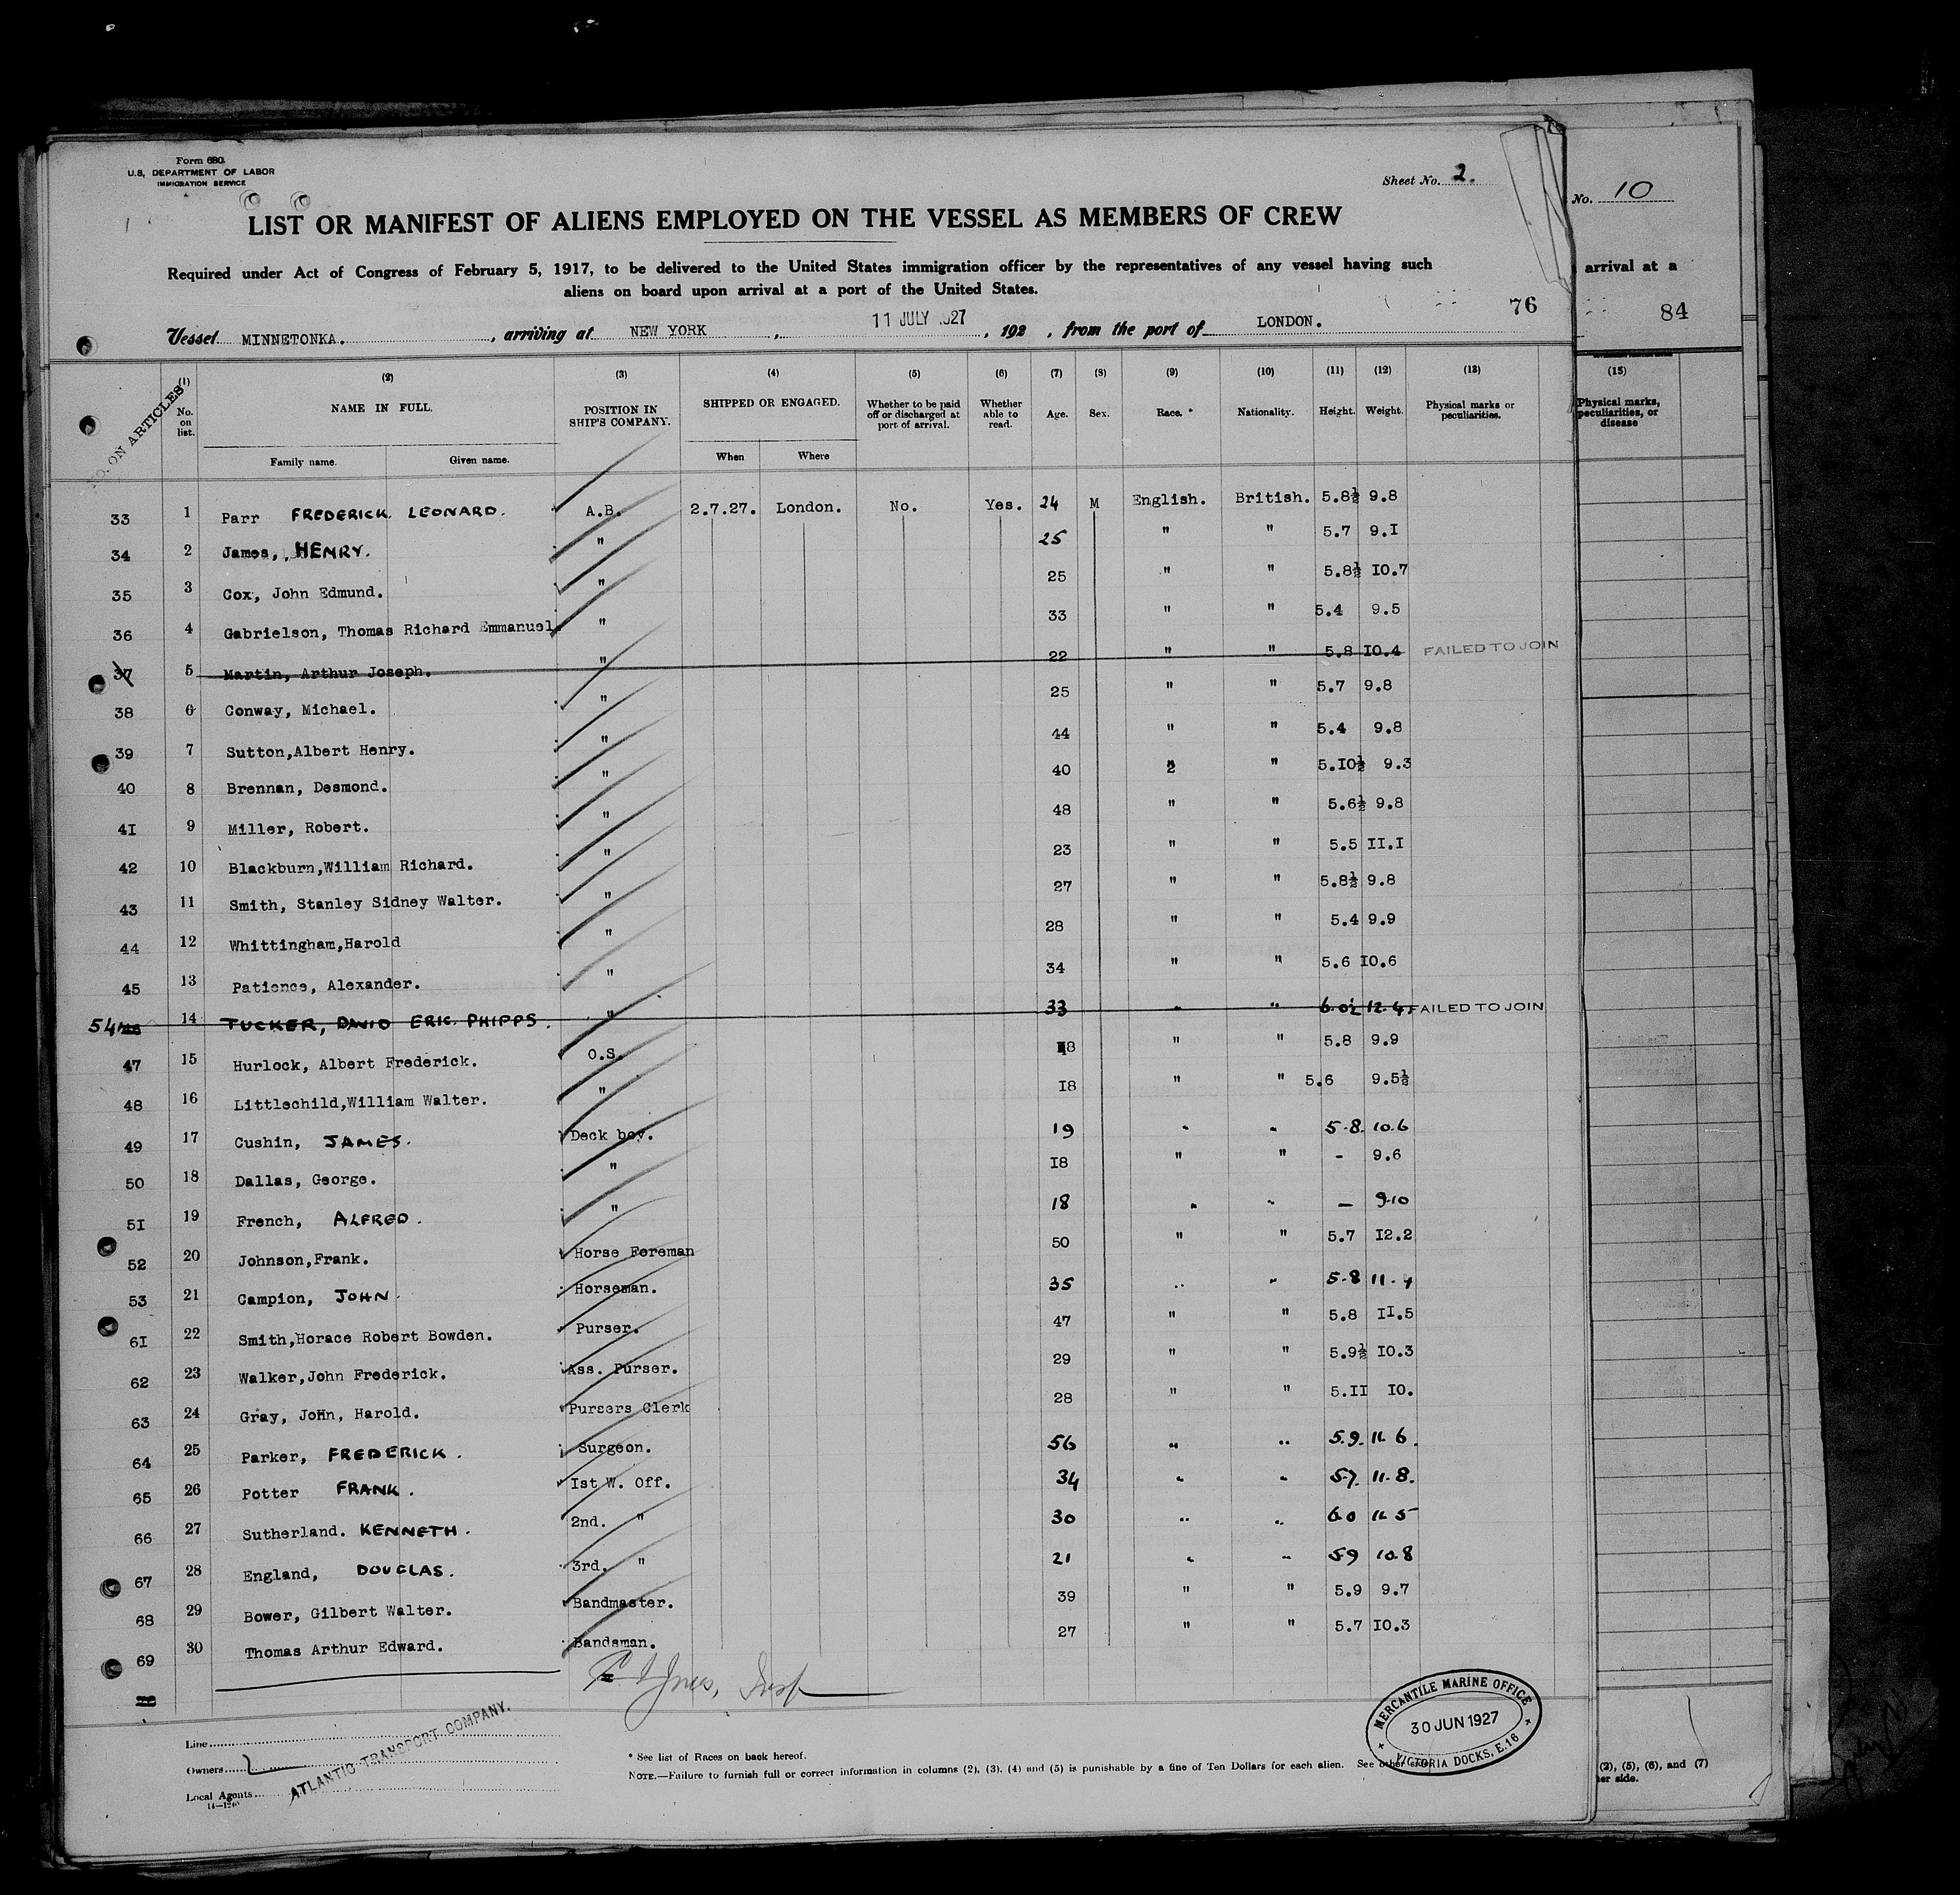 Form 680.
U.S. DEPARTMENT OF LABOR
IMMIGRATION SERVICE
Sheet No. 2.
No. 10
LIST OR MANIFEST OF ALIENS EMPLOYED ON THE VESSEL AS MEMBERS OF CREW
Required under Act of Congress of February 5, 1917, to be delivered to the United States immigration officer by the representatives of any vessel having such
aliens on board upon arrival at a port of the United States.
arrival at a
76
84
Vessel MINNETONKA. , arriving at NEW YORK , 11 JULY 1927 , 192 , from the port of LONDON.
NO. ON ARTICLES
(1) No. on list.
(2) NAME IN FULL. Family name. Given name.
(3) POSITION IN SHIP'S COMPANY.
(4) SHIPPED OR ENGAGED. When Where
(5) Whether to be paid off or discharged at port of arrival.
(6) Whether able to read.
(7) Age.
(8) Sex.
(9) Race.*
(10) Nationality.
(11) Height.
(12) Weight.
(13) Physical marks or peculiarities.
(15) Physical marks, peculiarities, or disease
33 1 Parr FREDERICK LEONARD. A.B. 2.7.27. London. No. Yes. 24 M English. British. 5.8½ 9.8
34 2 James, HENRY. " 25 " " 5.7 9.I
35 3 Cox, John Edmund. " 25 " " 5.8½ I0.7
36 4 Gabrielson, Thomas Richard Emmanuel. " 33 " " 5.4 9.5
37 5 Martin, Arthur Joseph. " 22 " " 5.8 I0.4 FAILED TO JOIN
38 6 Conway, Michael. " 25 " " 5.7 9.8
39 7 Sutton,Albert Henry. " 44 " " 5.4 9.8
40 8 Brennan, Desmond. " 40 " " 5.I0½ 9.3
4I 9 Miller, Robert. " 48 " " 5.6½ 9.8
42 10 Blackburn,William Richard. " 23 " " 5.5 II.I
43 11 Smith, Stanley Sidney Walter. " 27 " " 5.8½ 9.8
44 12 Whittingham,Harold " 28 " " 5.4 9.9
45 13 Patience, Alexander. " 34 " " 5.6 I0.6
54 46 14 TUCKER, DAVID ERIC PHIPPS. " 33 " " 6.0½ 12.4. FAILED TO JOIN
47 15 Hurlock, Albert Frederick. O.S. I8 " " 5.8 9.9
48 16 Littlechild,William Walter. " I8 " " 5.6 9.5½
49 17 Cushin, JAMES. Deck boy. 19 " " 5.8. 10.6
50 18 Dallas, George. " I8 " " - 9.6
5I 19 French, ALFRED. " 18 " " - 9.10
52 20 Johnson,Frank. Horse Foreman 50 " " 5.7 I2.2
53 21 Campion, JOHN. Horseman. 35 " " 5.8 11.4
6I 22 Smith,Horace Robert Bowden. Purser. 47 " " 5.8 II.5
62 23 Walker,John Frederick. Ass. Purser. 29 " " 5.9½ I0.3
63 24 Gray, JoHn, Harold. Pursers Clerk 28 " " 5.II I0.
64 25 Parker, FREDERICK. Surgeon. 56 " " 5.9. 11.6.
65 26 Potter FRANK. Ist W. Off. 34 " " 5.7. 11.8.
66 27 Sutherland. KENNETH. 2nd. " 30 " " 6.0 11.5
67 28 England, DOUGLAS. 3rd. " 21 " " 5.9 10.8
68 29 Bower, Gilbert Walter. Bandmaster. 39 " " 5.9 9.7
69 30 Thomas Arthur Edward. Bandsman. 27 " " 5.7 I0.3
Line
Owners
Local Agents
ATLANTIC TRANSPORT COMPANY.
14—1240
* See list of Races on back hereof.
NOTE.—Failure to furnish full or correct information in columns (2), (3), (4) and (5) is punishable by a fine of Ten Dollars for each alien. See other side.
MERCANTILE MARINE OFFICE
30 JUN 1927
VICTORIA DOCKS, E.16
(2), (5), (6), and (7)
her side.